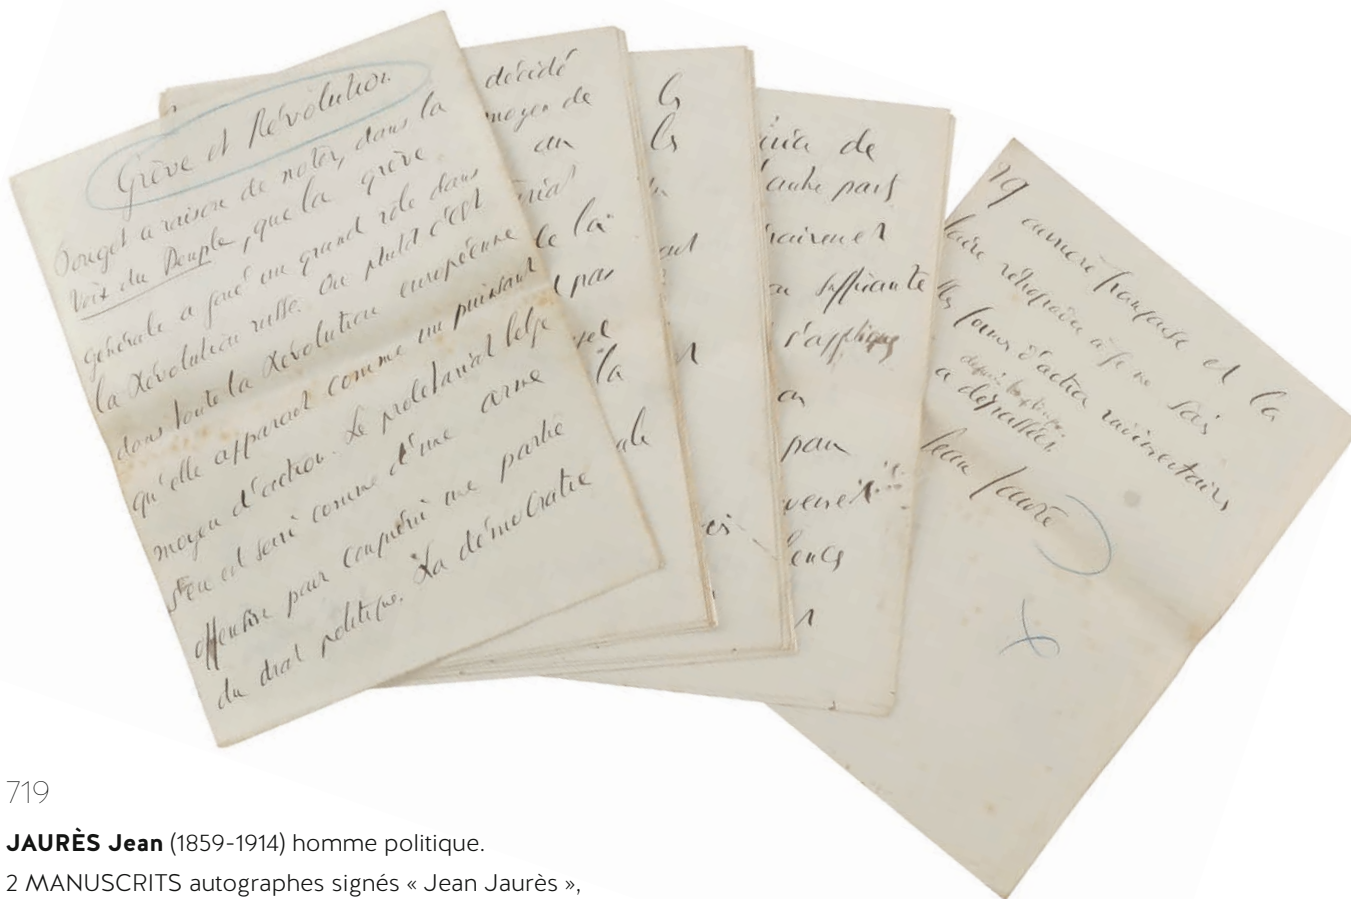 Grève et Révolution
Pouget a raison de noter, dans la
Voix du Peuple, que la grève
générale a joué un grand rôle dans
la Révolution russe. Ou plutôt c'est
dans toute la Révolution européenne
qu'elle apparaît comme un puissant
moyen d'action. Le prolétariat belge
s'en est servi comme d'une arme
offensive pour conquérir une partie
du droit politique. La démocratie
décidé
moyen de
au
de la
pas
la
ale
ls
ls
de
l'autre part
suffisante
s'applique
on
par
19
ouvrière française et la
faire rétrograder à je ne sais
formes d'action rudimentaires
depuis longtemps
a dépassées
Jean Jaurès
719
JAURÈS Jean (1859-1914) homme politique.
2 MANUSCRITS autographes signés « Jean Jaurès »,